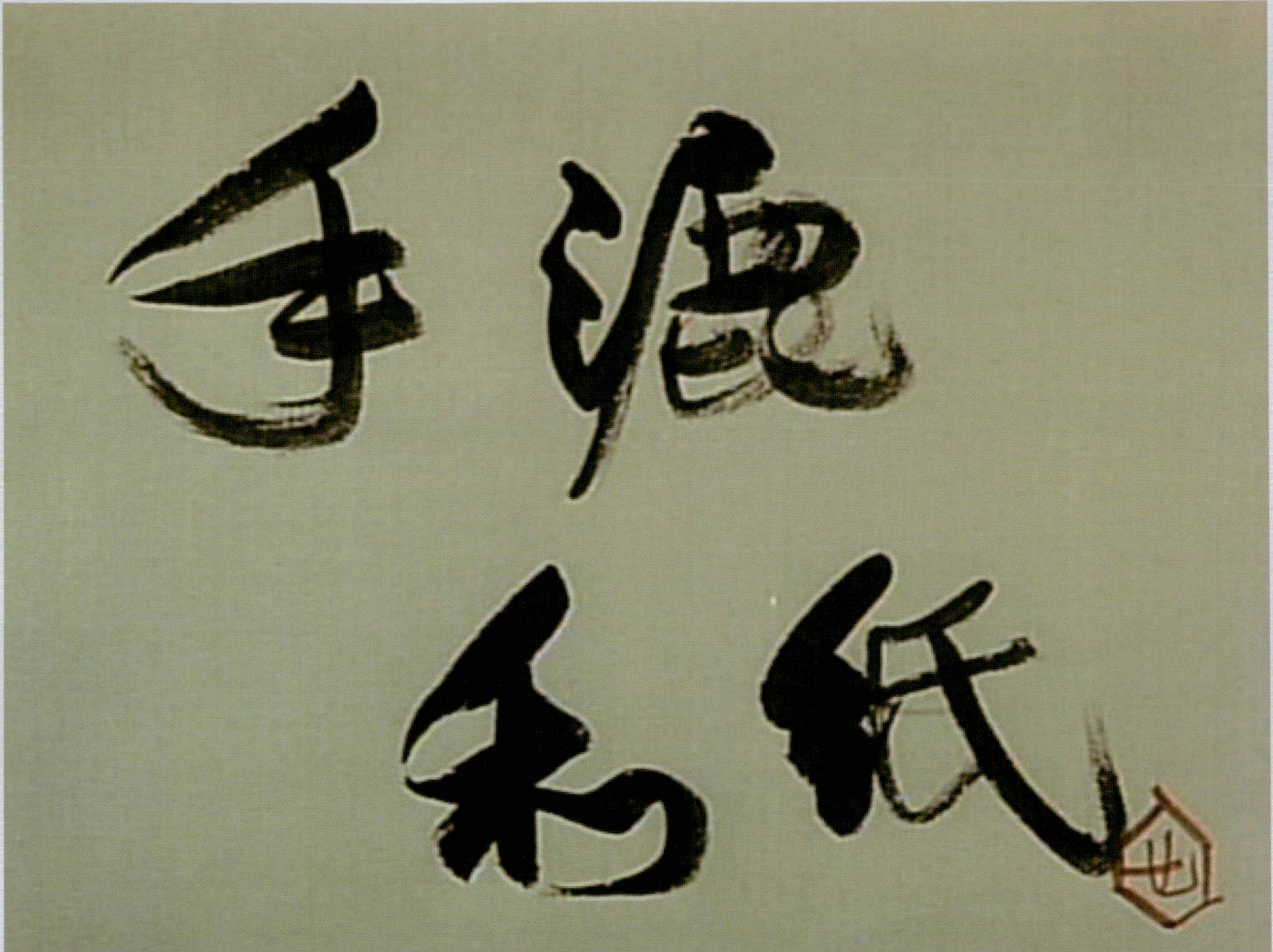 手漉
和紙